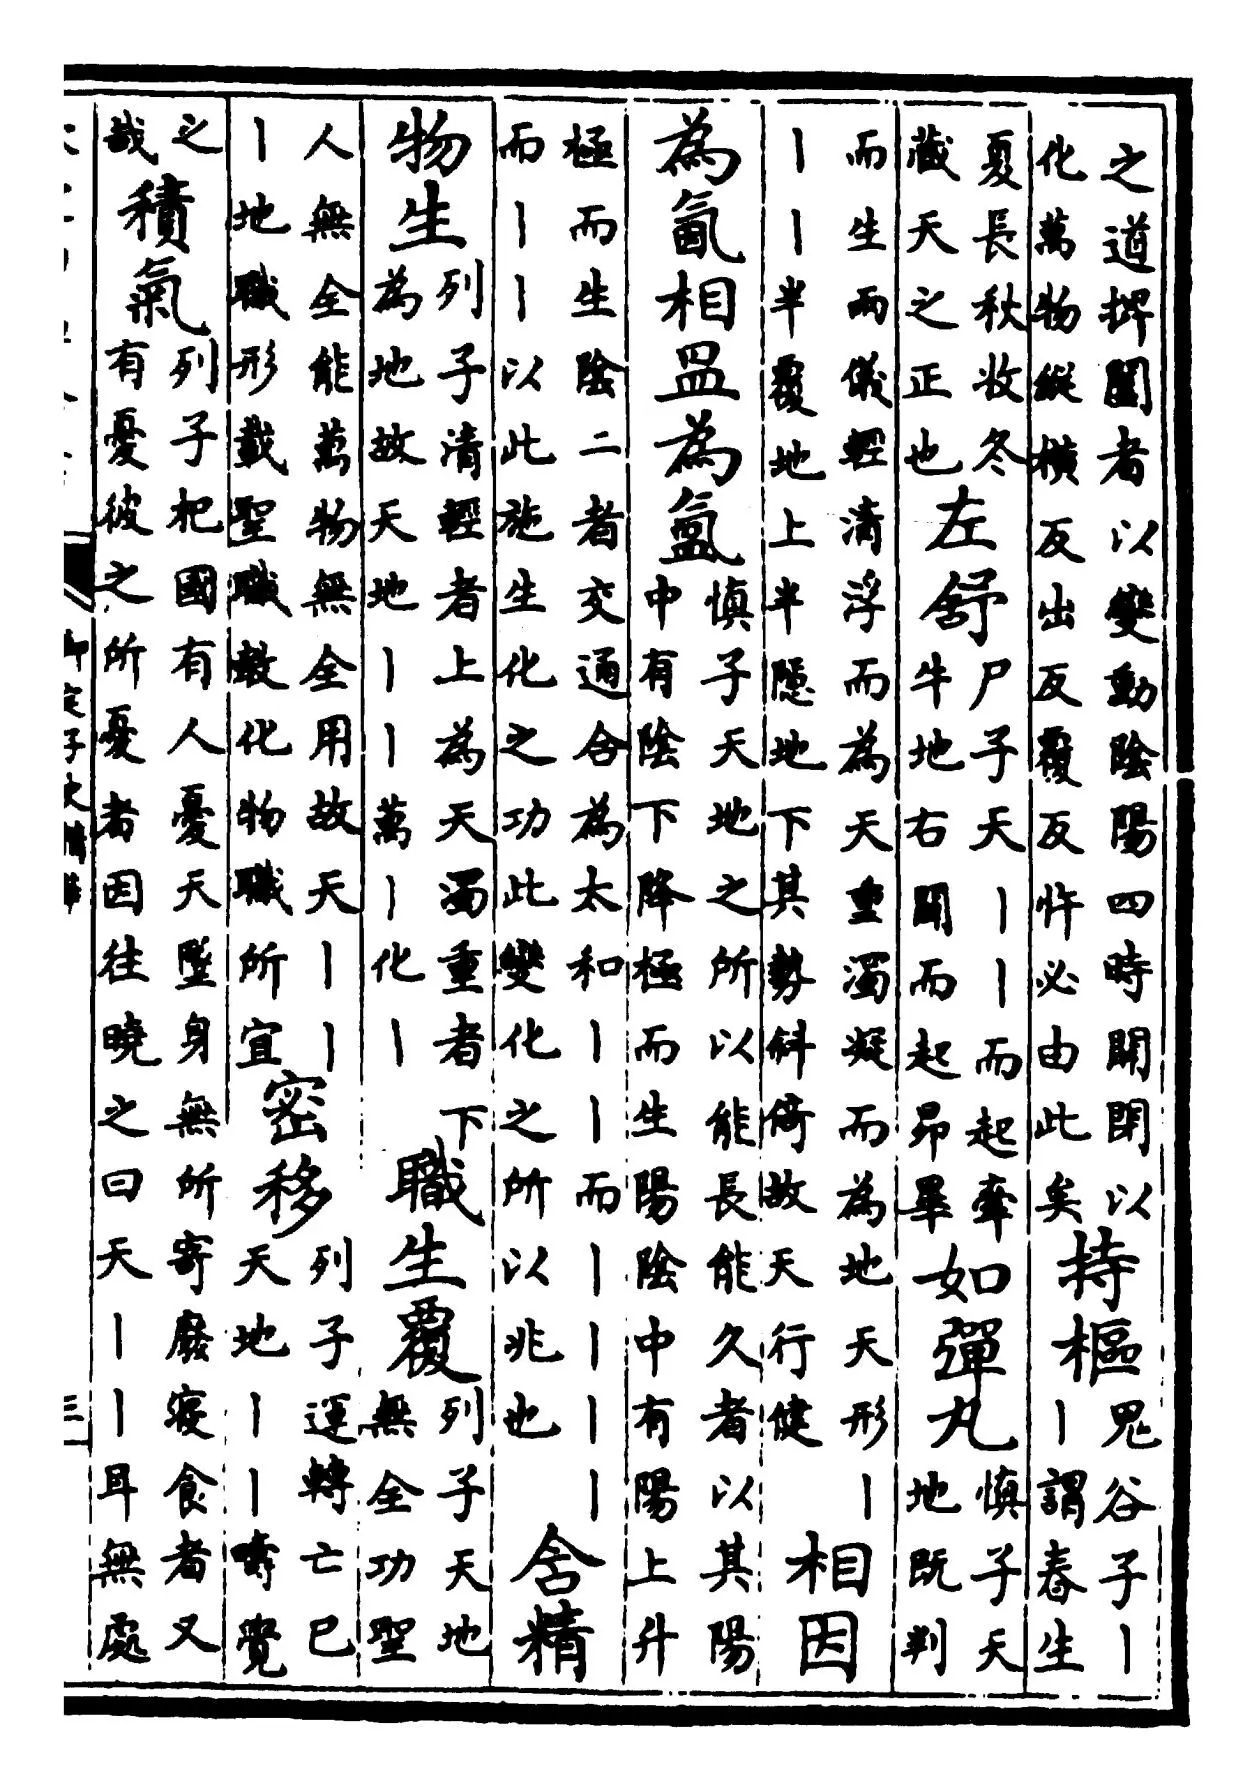 之道捭闔者以變動陰陽四時開閉以
化萬物縱橫反出反覆反忤必由此矣
持樞
鬼谷子丨
丨謂春生
夏長秋收冬
藏天之正也
左舒
尸子天丨丨而起牽
牛地右闢而起昴畢
如彈丸
慎子天
地既判
而生兩儀輕清浮而為天重濁凝而為地天形丨
丨丨半覆地上半隱地下其勢斜倚故天行健
相因
為氤相昷為氳
慎子天地之所以能長能久者以其陽
中有陰下降極而生陽陰中有陽上升
極而生陰二者交通合為太和丨丨而丨丨丨丨
而丨丨以此施生化之功此變化之所以兆也
含精
物生
列子清輕者上為天濁重者下
為地故天地丨丨萬丨化丨
職生覆
列子天地
無全功聖
人無全能萬物無全用故天丨丨
丨地職形載聖職敎化物職所宜
密移
列子運轉亡已
天地丨丨疇覺
之
哉
積氣
列子杞國有人憂天墜身無所寄廢寢食者又
有憂彼之所憂者因往曉之曰天丨丨耳無處
御定子史精華
三